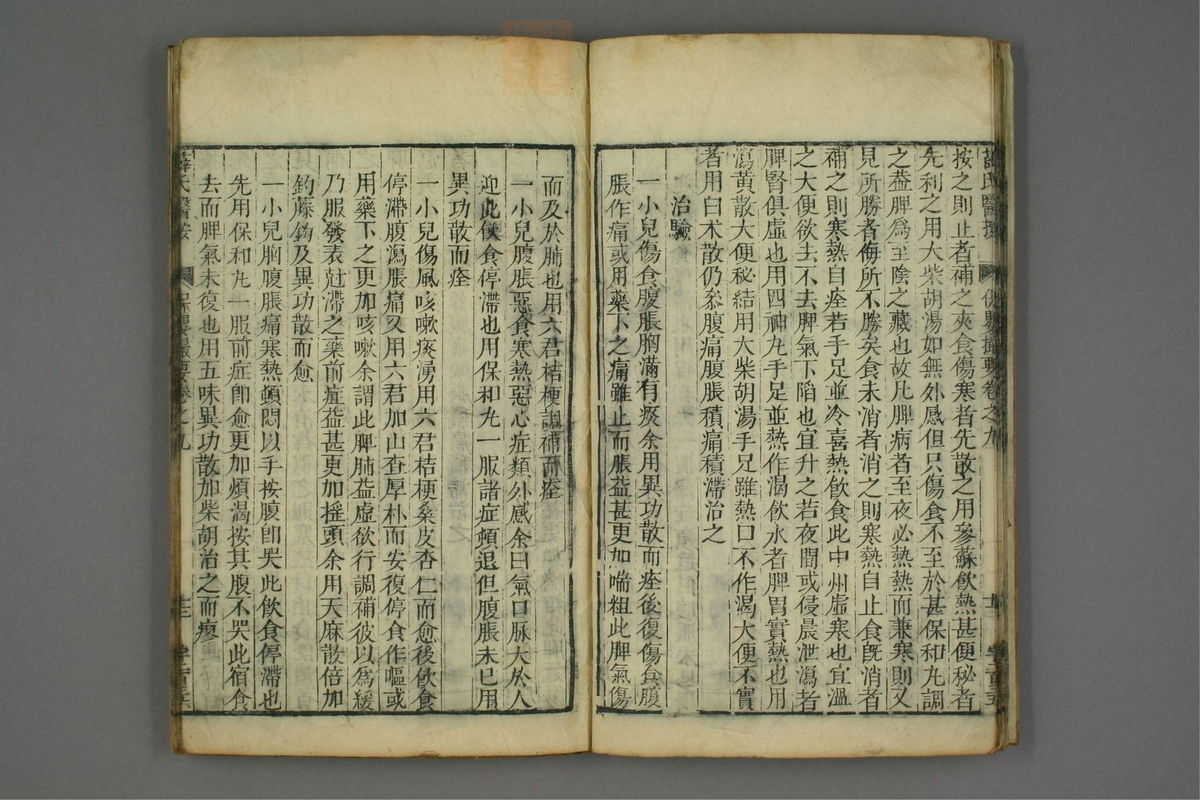 薛氏醫按 保嬰撮要卷之九
按之則止者補之夾食傷寒者先散之用參蘇飲熱甚便秘者
先利之用大柴胡湯如無外感但只傷食不至於甚保和丸調
之蓋脾爲至陰之藏也故凡脾病者至夜必熱熱而兼寒則又
見所勝者侮所不勝矣食未消者消之則寒熱自止食既消者
補之則寒熱自痊若手足並冷喜熱飲食此中州虛寒也宜溫
之大便欲去不去脾氣下陷也宜升之若夜間或侵晨泄瀉者
脾腎俱虛也用四神丸手足並熱作渴飲水者脾胃實熱也用
瀉黃散大便秘結用大柴胡湯手足雖熱口不作渴大便不實
者用白术散仍叅腹痛腹脹積痛積滯治之
治驗
一小兒傷食腹脹胸滿有痰余用異功散而痊後復傷食腹
脹作痛或用藥下之痛雖止而脹益甚更加喘粗此脾氣傷
而及於肺也用六君桔梗調補而痊
一小兒腹脹惡食寒熱惡心症類外感余曰氣口脉大於人
迎此飲食停滯也用保和丸一服諸症頓退但腹脹未已用
異功散而痊
一小兒傷風咳嗽痰湧用六君桔梗桑皮杏仁而愈後飲食
停滯腹瀉脹痛又用六君加山查厚朴而安復停食作嘔或
用藥下之更加咳嗽余謂此脾肺益虛欲行調補彼以爲緩
乃服發表尅滯之藥前症益甚更加搖頭余用天麻散倍加
釣藤鈎及異功散而愈
一小兒胸腹脹痛寒熱頓悶以手按腹卽哭此飲食停滯也
先用保和丸一服前症卽愈更加煩渴按其腹不哭此宿食
去而脾氣未復也用五味異功散加柴胡治之而瘳
薛氏醫按 保嬰撮要卷之九